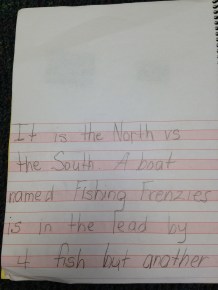 It is the North vs
the South A boat
named Fishing Frenzies
is in the lead by
4 fish but another